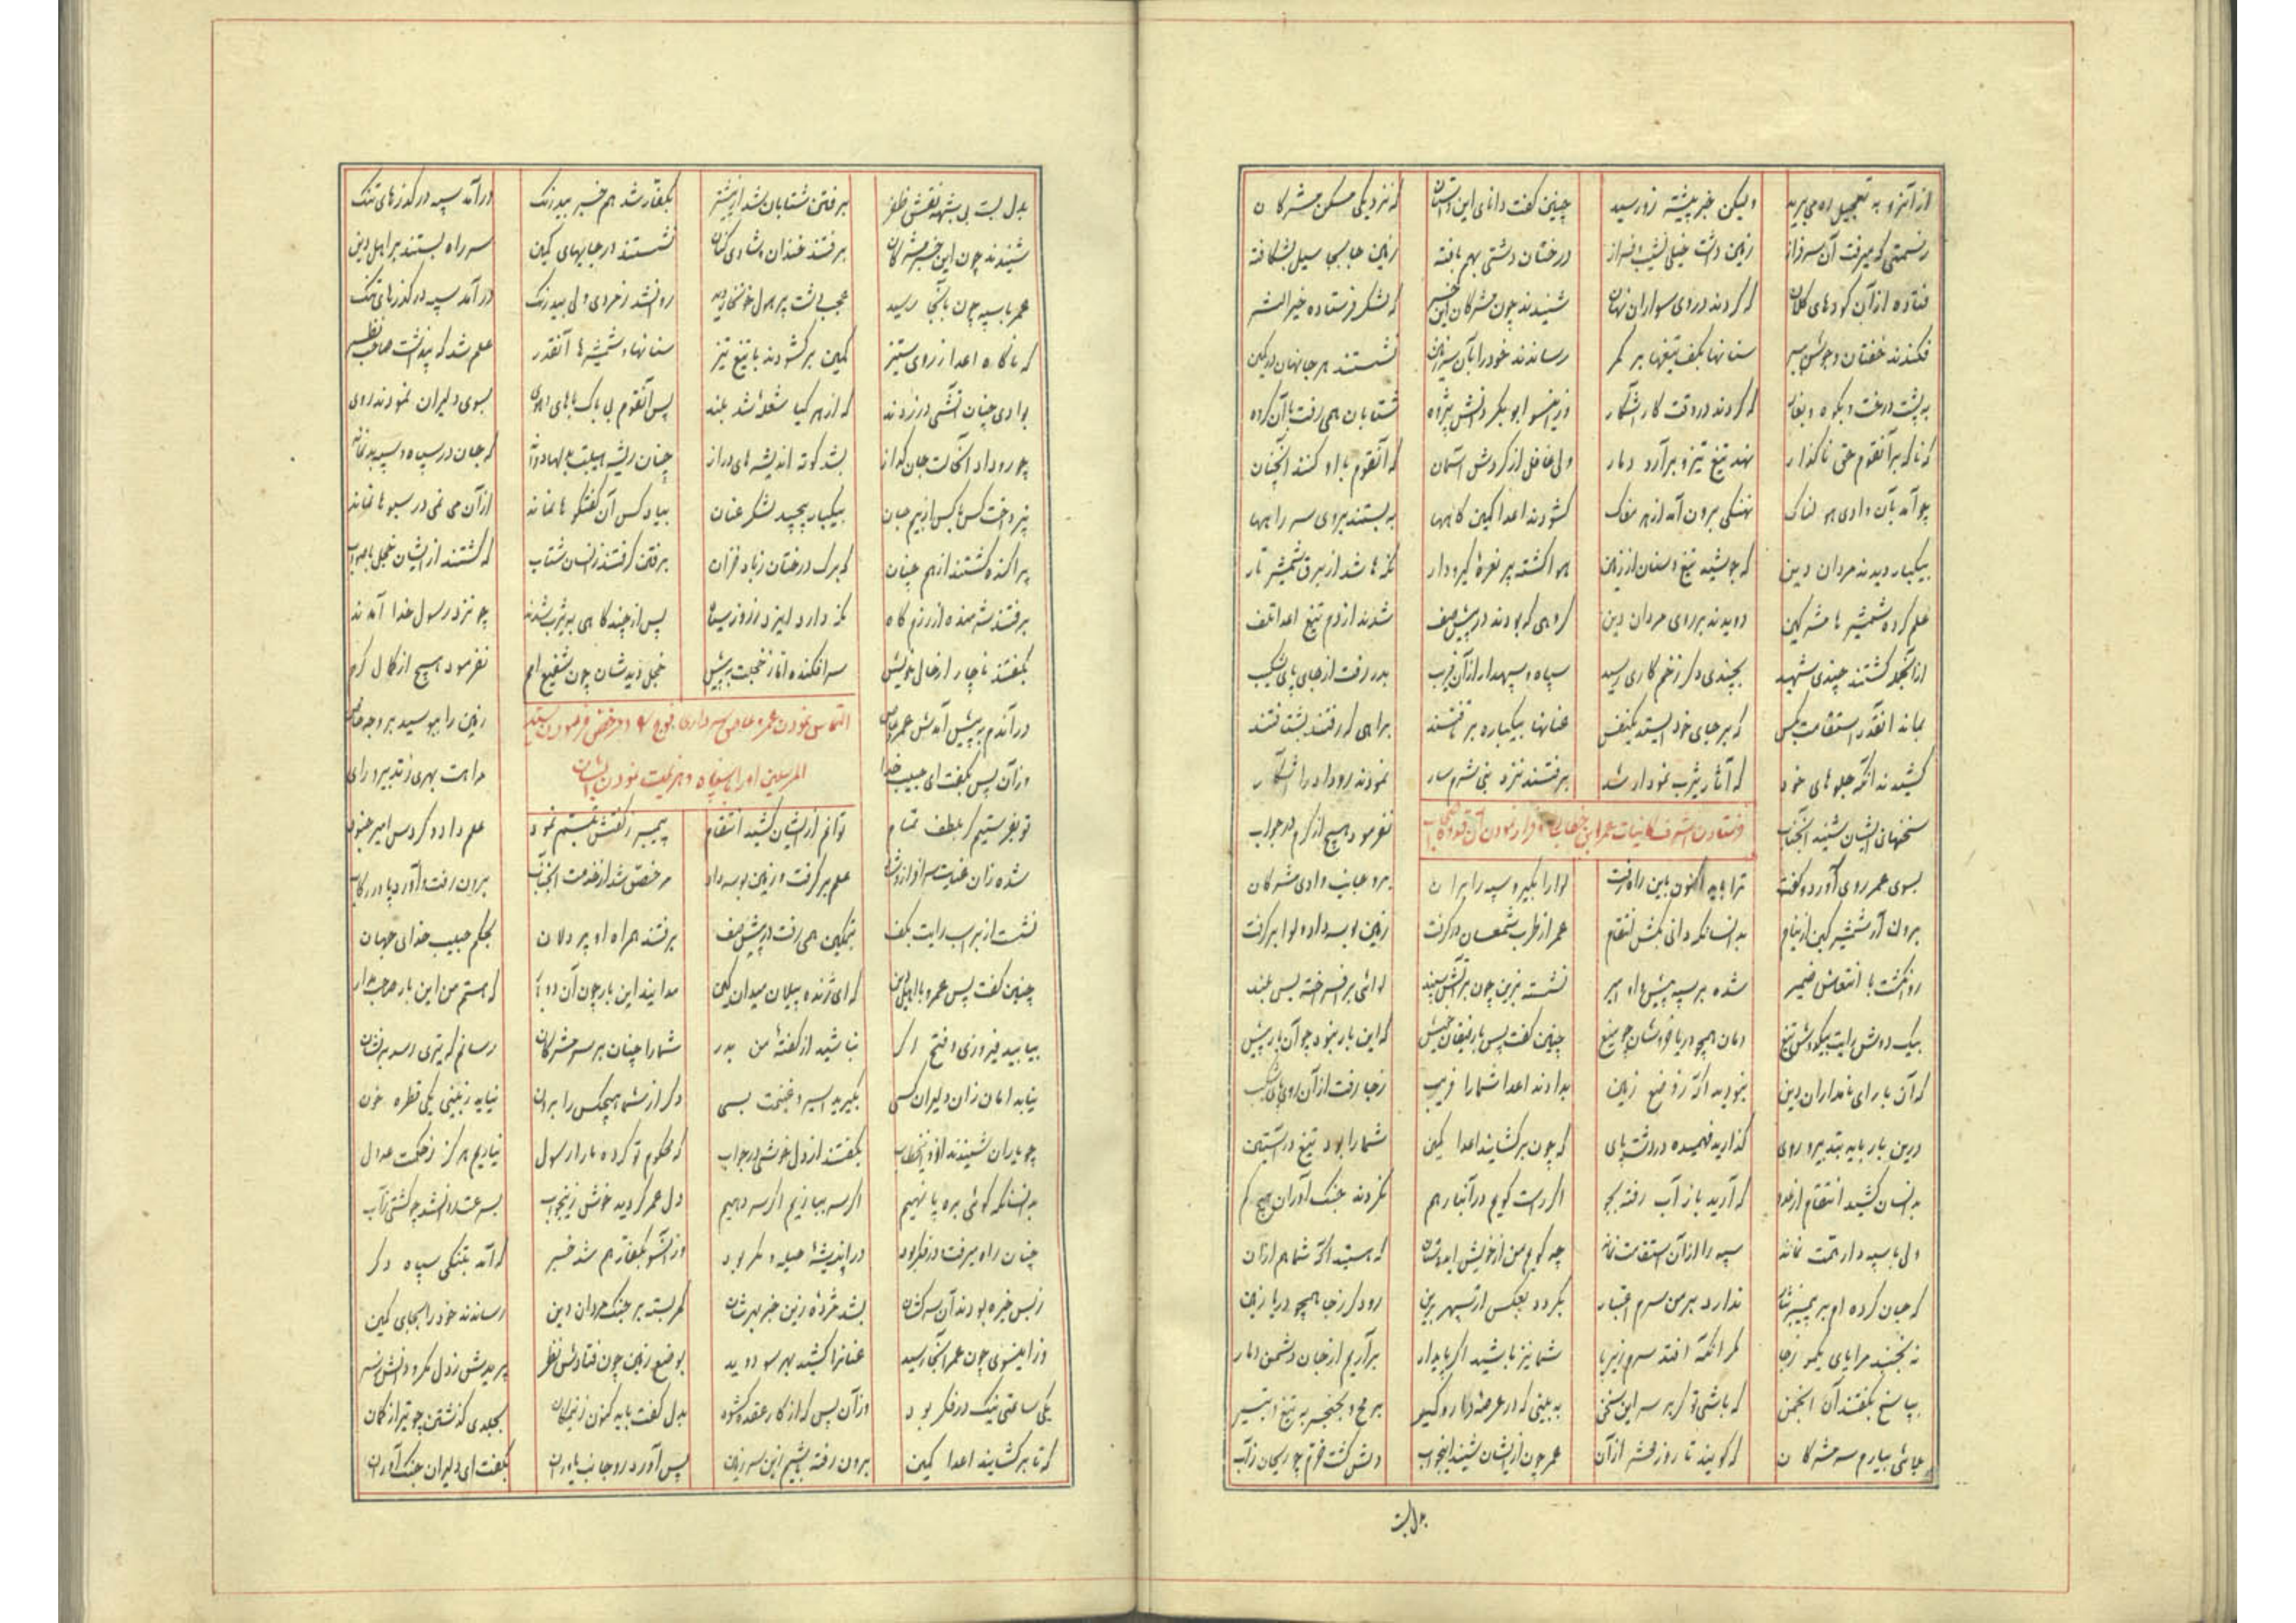 از آنرو به تعجیل ره می برید ولیکن خبر پیشتر زو رسید چنین گفت دانای این داستان که نزدیکی مسکن مشرکان
زسمتی که میرفت آن سرفراز زمین داشت خیلی نشیب و فراز درختان دشتی بهم بافته زمین جابجا سیل بشکافته
فتاده از آن کودهای کلان که کردند در وی سواران نهان شنیدند چون مشرکان این خبر که لشکر فرستاده خیرالبشر
فکندند خفتان و جوشن ببر سنانها بکف تیغها بر کمر رساندند خود را بآن سرزمین نشستند هر جا نهان در کمین
به پشت درخت و بکوه و بغار که کردند در وقت کار آشکار وزینسو ابوبکر دانش پژوه شتابان همی رفت با آن گروه
که ناگه بر آنقوم حق ناگذار نهد تیغ تیز و برآرد دمار ولی غافل از گردش آسمان که آنقوم با او کنند آنچنان
چو آمد بآن وادی هولناک نهنگی برون آمد از هر مغاک گشودند اعدا کمین گاهها به بستند بروی سر راهها
بیکبار دیدند مردان دین که جوشید تیغ و سنان از زمین هوا گشته پر نعره گیر و دار نگه ها شد از برق شمشیر تار
علم کرده شمشیرها مشرکین دویدند بر روی مردان دین گروهی که بودند در پیش صف شدند از دم تیغ اعدا تلف
از آنجمله گشتند چندی شهید بچندی دگر زخم کاری رسید سپاه و سپهدار از آن فریب بدر رفت از جای پای شکیب
نماند آنقدر استقامت بکس که بر جای خود ایستد یکنفس عنانها بیکباره برتافتند براهی که رفتند بشتافتند
کشیدند آنگه جلوهای خود که آثار یثرب نمودار شد برفتند نزد نبی شرمسار نمودند روداد را آشکار
سخنهای ایشان شنید آنجناب نفرمود هیچ از کرم در جواب
فرستادن اشرف کاینات عمر ابن خطاب را و فرار نمودن آن
بسوی عمر روی آورد و گفت ترا باید اکنون باین راه رفت لوا را بگیر و سپه را بران برو جانب وادی مشرکان
برون آر شمشیر کین از نیام بدانسانکه دانی بکش انتقام عمر از طرب شمعسان در گرفت زمین بوسه داد و لوا برگرفت
روان گشت با انتعاش ضمیر شده بر سپه پیش او امیر نشسته بزین چون بر آتش سپند لوائی برافراخته بس بلند
بیک دوش رایت بیکدوش تیغ دمان همچو دریا خروشان چو میغ چنین گفت پس با رفیقان خویش که این بار نبود چو آن بار پیش
که آن بار ای نامداران دین نبودید آگه ز وضع زمین بدادند اعدا شما را فریب زجا رفت از آن روی پای شکیب
درین بار باید بتدبیر و روی گذارید فهمیده در دشت پای که چون برگشایند اعدا کمین شما را بود تیغ در آستین
بدانسان کشید انتقام از عدو که آرید باز آب رفته بجو اگر راست گویم در آنبار هم نکردند جنگ آوران هیچ کم
ولی با سپهدار همت نماند سپه را از آن استقامت نماند چه گویم من از خویش ایدوستان که هستید آگه شما هم از آن
که جان کرده ام بر پیمبر نثار ندارد بر من سرم اعتبار بگردد بعکس ار سپهر برین رود گر زجا همچو دریا زمین
نه جنبد مرا پای یکمو زجا مگر آنگه افتد سرم زیر پا شما نیز باشید اگر پایدار برآریم از جان دشمن دمار
بپاسخ بگفتند آن انجمن که باشی تو گر بر سر این سخن به بینی که در عرصه دار و گیر برمح و بخنجر به تیغ و بتیر
بجائی بیاریم سر مشرکان که گویند تا روز محشر از آن عمر چون از ایشان شنید اینجواب دلش گشت خرم چو ریحان زآب
بدل بست
بدل بست بی شبهه نقش ظفر برفتن شتابان شد از پیشتر بکفار شد هم خبر بیدرنگ درآمد سپه در گذرهای تنگ
شنیدند چون این خبر مشرکان برفتند خندان و شادی کنان نشستند در جایهای کمین سر راه بستند بر اهل دین
عمر با سپه چون بآنجا رسید عجب دشت پر هول خونخار دید روان شد زخردی ولی بیدرنگ درآمد سپه در گذرهای تنگ
که ناگاه اعدا از روی ستیز کمین برگشودند با تیغ تیز سنانها و شمشیرها آنقدر علم شد که بنداشت صاحب نظر
بوادی چنان آتشی در زدند که از هر گیا شعله شد بلند پس آنقوم بی باک با های و هوی بسوی دلیران نمودند روی
چو روداد آنحالت جان گداز بشد کوته اندیشه های دراز چنان ریشه هیبت بدلها دواند که جان در سپاه و سپهبد نماند
نپرداخت کس با کس از بیم جان بیکبار پیچید لشکر عنان بیاد کس آن گفتگوها نماند از آن می نمی در سبوها نماند
پراکنده گشتند از هم چنان که برگ درختان زباد خزان برفتن گرفتند زانسان شتاب که گشتند از ایشان خجل
برفتند شرمنده از رزم گاه نگه دارد ایزد ز روز سیاه پس از چندگاهی به یثرب شدند چو نزد رسول خدا آمدند
بگفتند ناچار از حال خویش سرافکنده اما ز خجلت به پیش خجل دیدشان چون شفیع امم نفرمود هیچ از کمال کرم
درآندم به پیش آمدش عمروعاص زمین را ببوسید بر وجه خاص
التماس نمودن عمرو عاص سرداری فوج و مرخص فرمودن سید
المرسلین او را با سپاه و هزیمت نمودن ایشان
وزآن پس بگفت ای حبیب خدا مرا هست بهری ز تدبیر و رای
تو بفرستیم گر بلطف تمام توانم از ایشان کشید انتقام پیمبر ز گفتش تبسم نمود علم داد و کردش امیر جنود
شده زان عنایت سرافراز و شاد علم برگرفت و زمین بوسه داد مرخص شد از خدمت آنجناب برون رفت و آورد پا در رکاب
نشست از بر اسب رایت بکف بتمکین همی رفت در پیش صف برفتند همراه او پردلان بحکم حبیب خدای جهان
چنین گفت پس عمرو با اهل دین که ای ژنده پیلان میدان کین مدانید این بار چون آن دو بار که هستم من این بار صاحب مدار
بیابید فیروزی و فتح اگر نباشید از گفته من بدر شما را چنان بر سر مشرکان رسانم که تیری رسد بر نشان
نیابد امان زان دلیران کسی بگیرید اسیر و غنیمت بسی دگر از شما هیچکس را بدان نیاید زبینی یکی قطره خون
چو یاران شنیدند از او این خطاب بگفتند از دل خوشی در جواب که محکوم تو کرده ما را رسول نیاریم هرگز زحکمت عدول
بدانسانکه گوئی بره پا نهیم اگر سر بیازیم اگر سر دهیم دل عمر گردید خوش زینجواب بسرعت روانشد چو کشتی زآب
چنان راه میرفت در فکر بود در اندیشه حیله و مکر بود وزآنسو بکفار هم شد خبر که آمد بتنگی سپاه دگر
زبس خیره بودند آن سرکشان بشد مژده زین خبر بهرشان کمر بسته بر جنگ مردان دین رساندند خود را بجای کمین
وز اینسوی چون عمر آنجا رسید عنانرا کشید بهر سو دوید بوضع زمین چون فتادش نظر پریدش زدل مکر و دانش زسر
یکی ساعتی نیک در فکر بود وزآن پس که از کار عقده گشود بدل گفت باید کنون زینمکان بجلدی گذشتن چو تیر از کمان
که تا برگشایند اعدا کمین برون رفته باشیم ازین سرزمین پس آورد رو جانب یاوران بگفت ای دلیران جنگ آوران